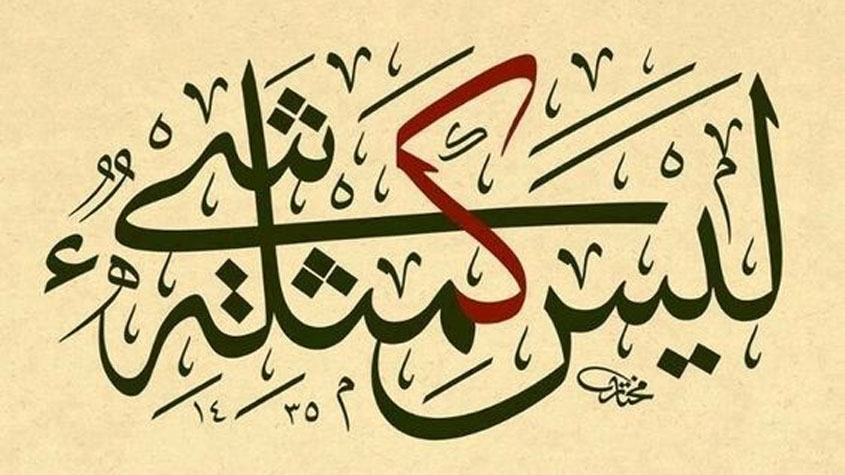 لَيْسَ كَمِثْلِهِ شَيْءٌ
مختار
١٤٣٥